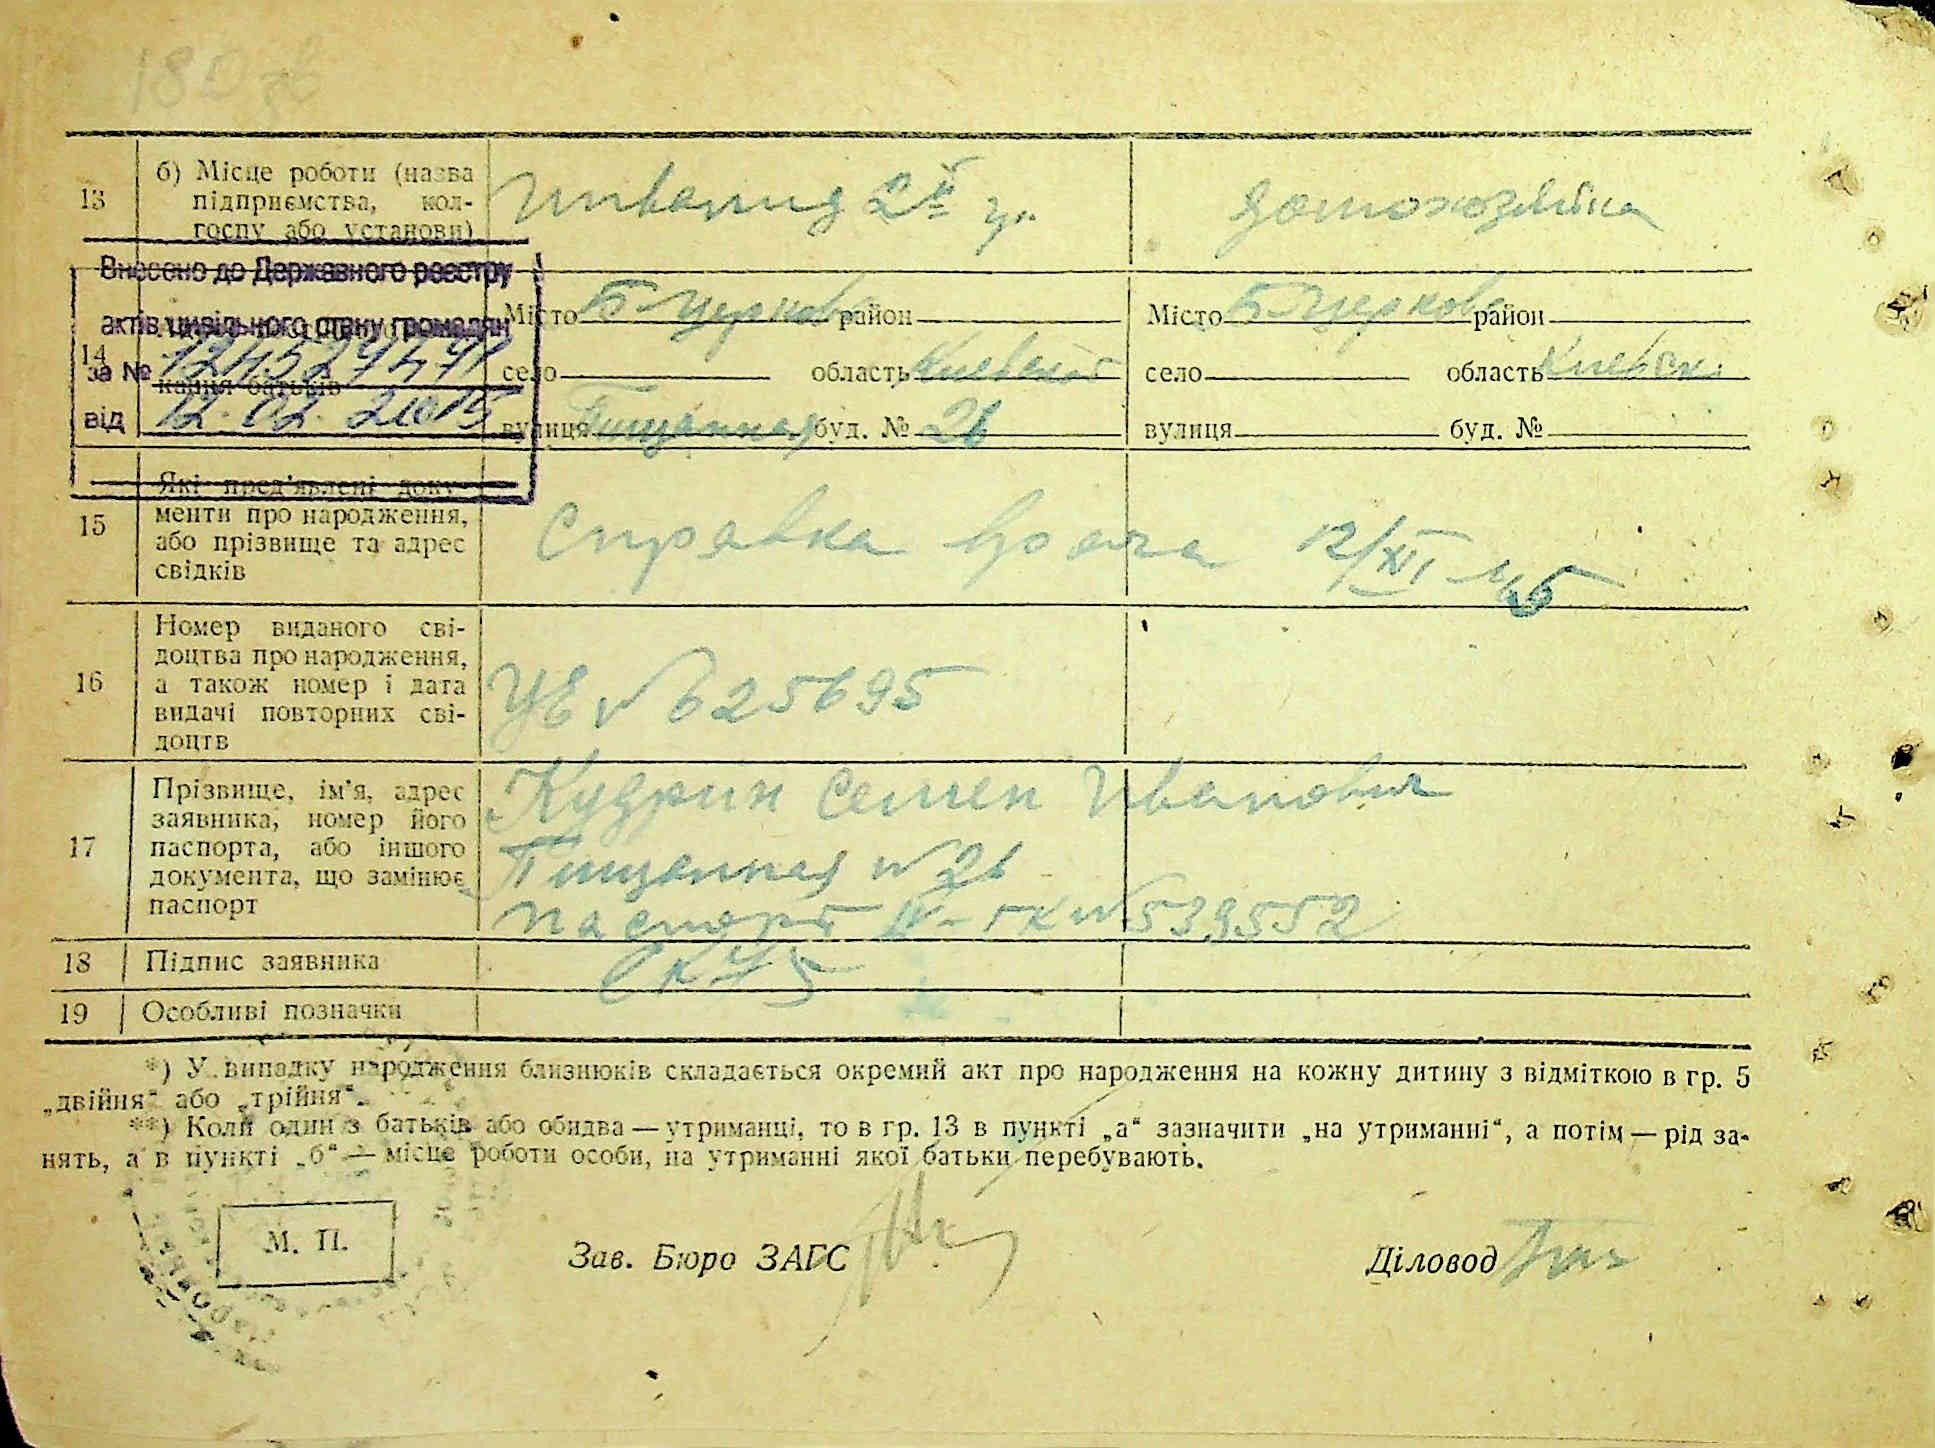 13
б) Місце роботи (назва
підприємства, кол-
госпу або установи)
Инвалид 2й гр.
домохозяйка
Внесено до Державного реєстру
актів цивільного стану громадян
за №
від 12.02.2015
14
кання батьків
Місто Б-Церковь район
село область Киевская
вулиця Пищанная буд. № 26
Місто Б-Церковь район
село область Киевск.
вулиця буд. №
15
Які пред'явлені доку-
менти про народження,
або прізвище та адрес
свідків
Справка врача 12/XI-45
16
Номер виданого сві-
доцтва про народження,
а також номер і дата
видачі повторних сві-
доцтв
УЕ № 625695
17
Прізвище, ім'я, адрес
заявника, номер його
паспорта, або іншого
документа, що замінює
паспорт
Кудрин Семен Иванович
Пищанная № 26
паспорт № 539552
18
Підпис заявника
19
Особливі позначки
*) У випадку народження близнюків складається окремий акт про народження на кожну дитину з відміткою в гр. 5
„двійня“ або „трійня“.
**) Коли один з батьків або обидва — утриманці, то в гр. 13 в пункті „а“ зазначити „на утриманні“, а потім — рід за-
нять, а в пункті „б“ — місце роботи особи, на утриманні якої батьки перебувають.
М. П.
Зав. Бюро ЗАГС
Діловод